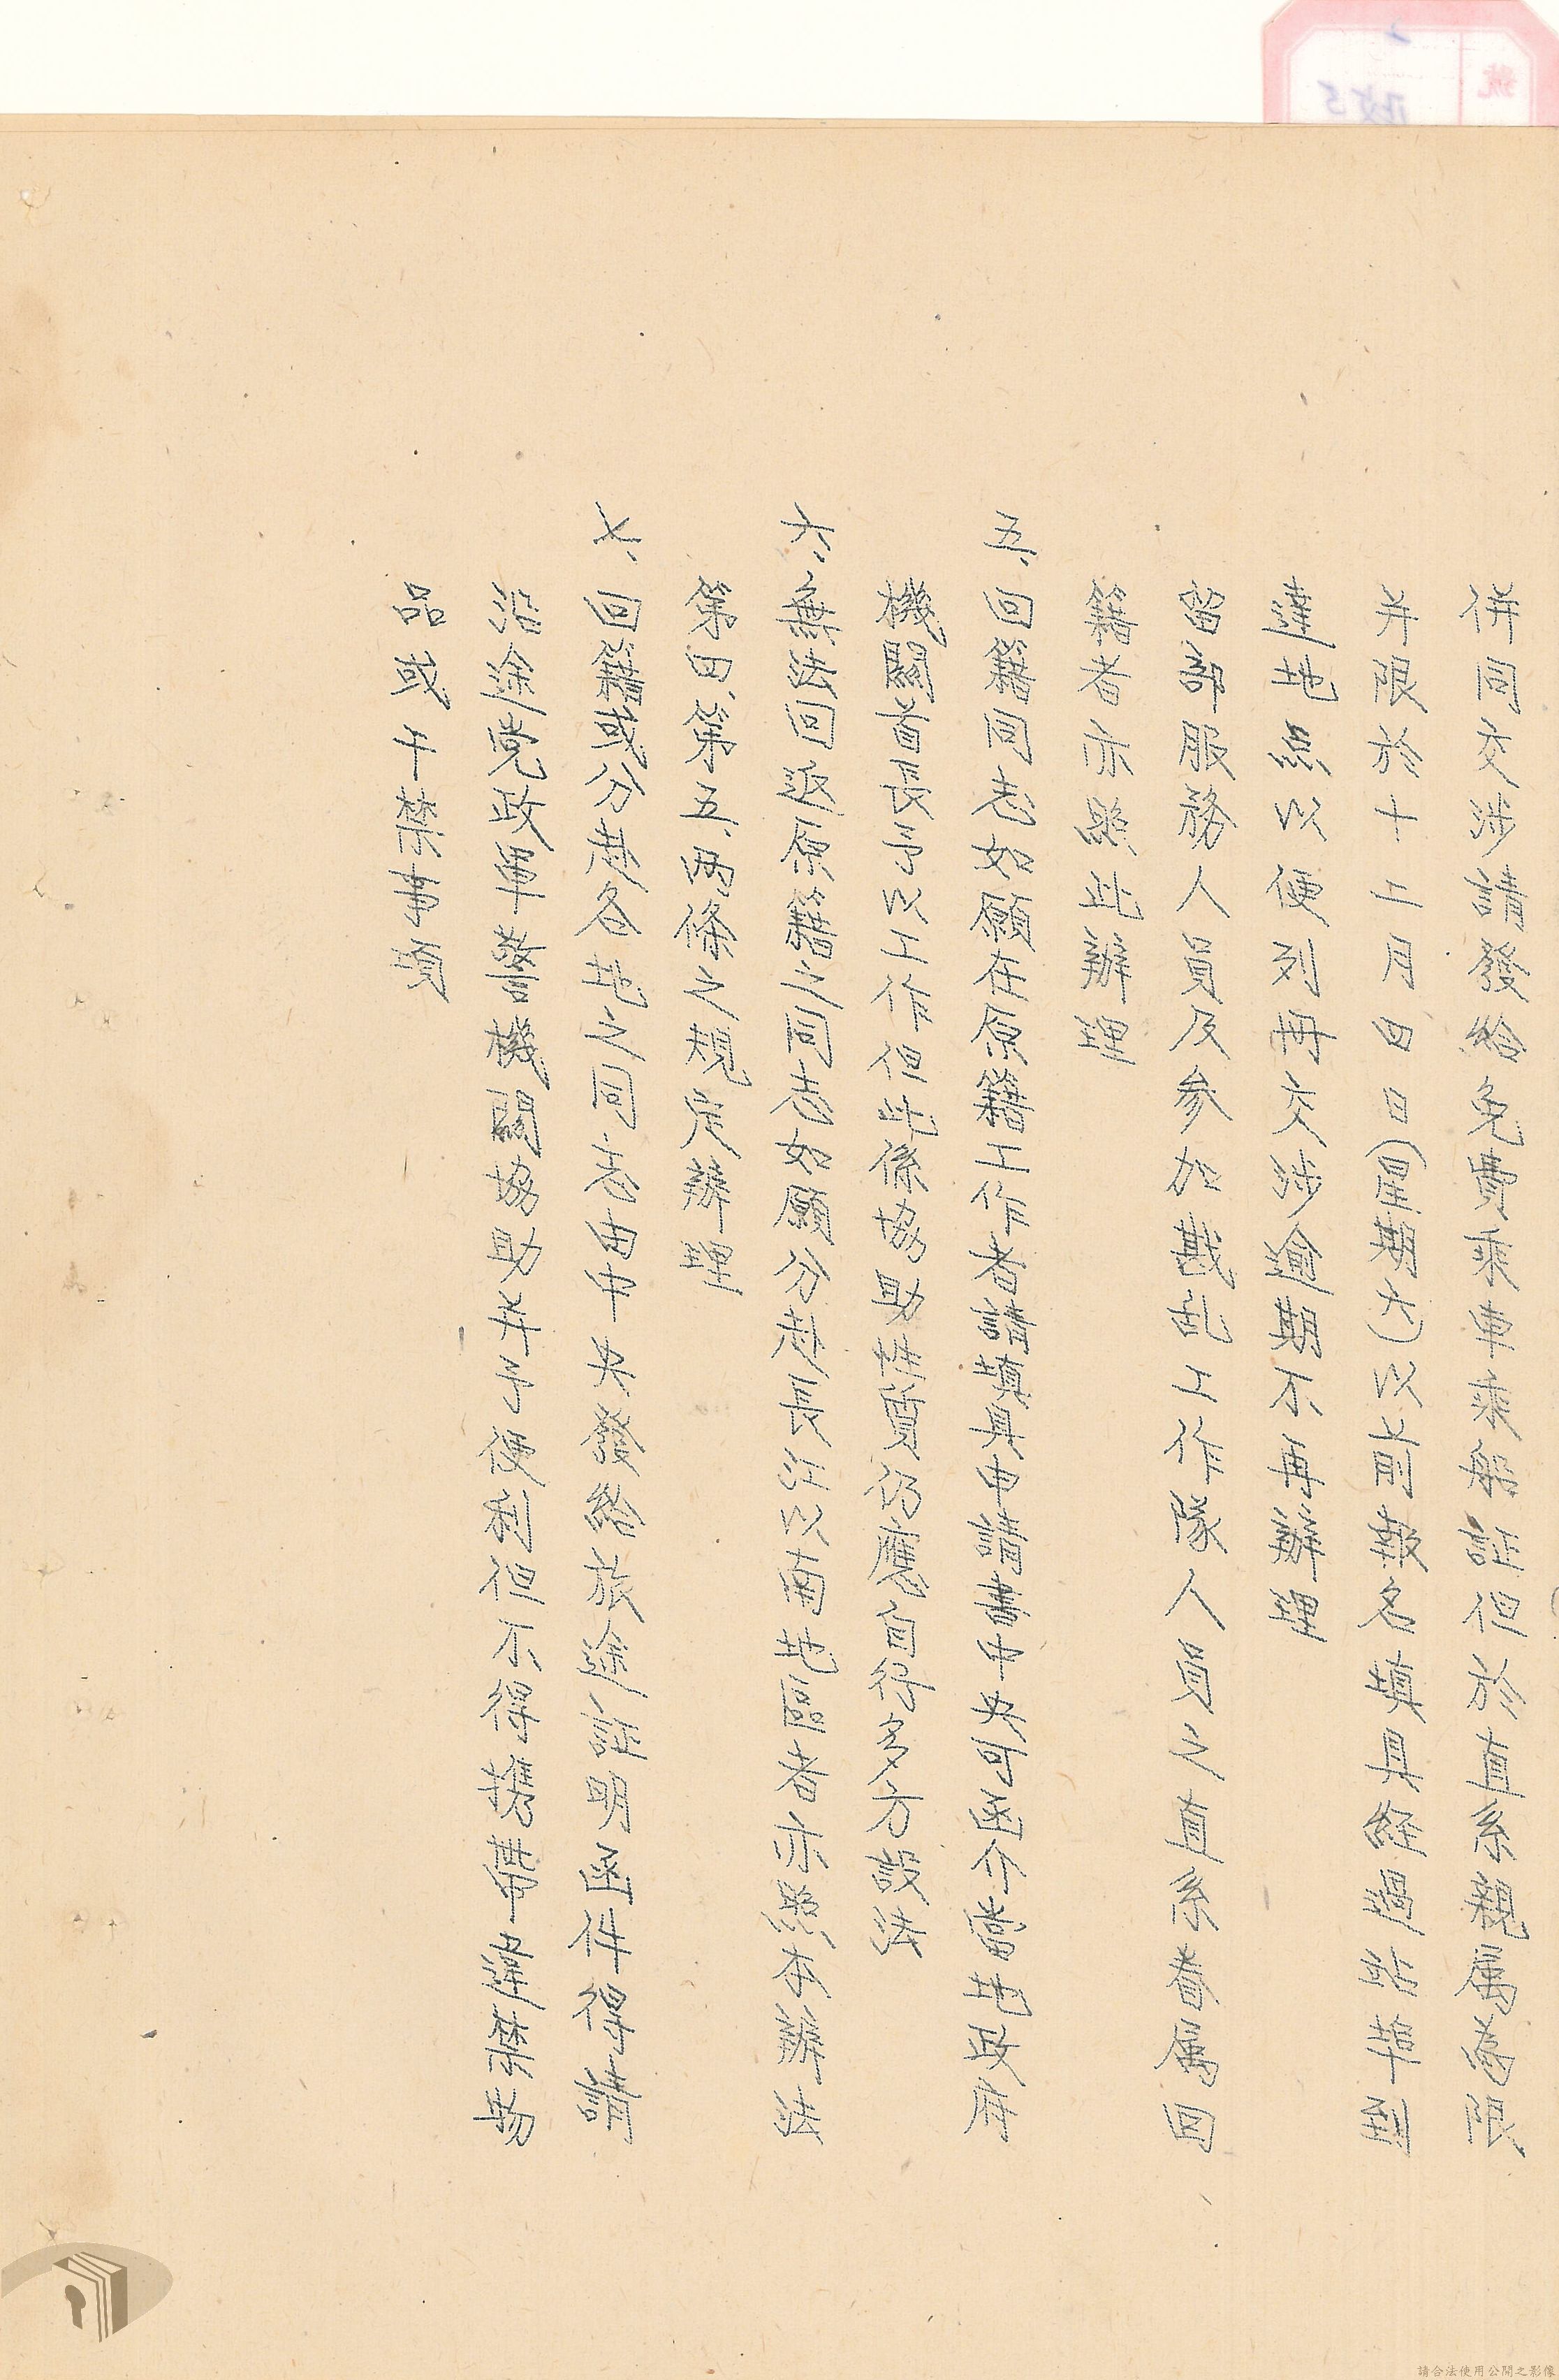 併同交涉請發給免費乘車乘船証但於直系親属為限
并限於十二月四日(星期六)以前報名填具經過站華到
達地点以便列冊交涉逾期不再辦理
留部服務人員及参加戡乱工作隊人員之直系眷属回
籍者亦照此辦理
五、回籍同志如願在原籍工作者請填具申請書中央可函介當地政府
機關首長予以工作但此係協助性質仍應自行多方設法
六、無法回返原籍之同志如願分赴長江以南地區者亦照本辦法
第四、第五、两條之規定辦理
七、回籍或分赴各地之同志由中央發給旅途証明函件得請
沿途党政軍警機關協助并予便利但不得携帶違禁物
品或干禁事項
號
請合法使用公開之影像